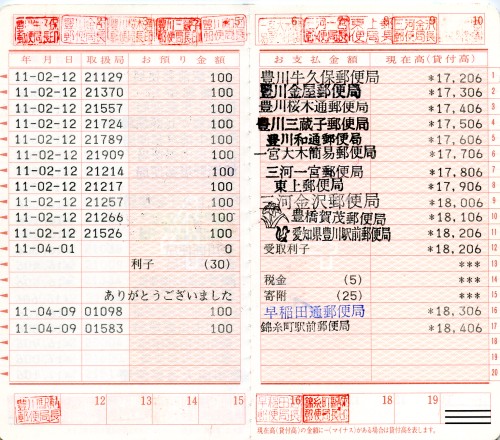 6 7 8 9 10
年月日 取扱局 お預り金額 お支払金額 現在高(貸付高)
11-02-12 21129 100 豊川牛久保郵便局 *17,206 1
11-02-12 21370 100 豊川金屋郵便局 *17,306 2
11-02-12 21557 100 豊川桜木通郵便局 *17,406 3
11-02-12 21724 100 豊川三蔵子郵便局 *17,506 4
11-02-12 21789 100 豊川和通郵便局 *17,606 5
11-02-12 21909 100 一宮大木簡易郵便局 *17,706 6
11-02-12 21214 100 三河一宮郵便局 *17,806 7
11-02-12 21217 100 東上郵便局 *17,906 8
11-02-12 21257 100 三河金沢郵便局 *18,006 9
11-02-12 21266 100 豊橋賀茂郵便局 *18,106 10
11-02-12 21526 100 愛知県豊川駅前郵便局 *18,206 11
11-04-01 0 受取利子 *18,206 12
利子 (30) *** 13
税金 (5) *** 14
ありがとうございました 寄附 (25) *** 15
11-04-09 01098 100 早稲田通郵便局 *18,306 16
11-04-09 01583 100 錦糸町駅前郵便局 *18,406 17
18
19
20
12 13 14 15 16 18
現在高(貸付高)の金額に-(マイナス)がある場合は貸付高を表します。